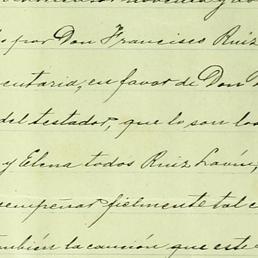 o por Don Francisco Ruiz
entaria, en favor de Don
del testador, que lo son los
y Elena todos Ruiz Lavin,
sempeñar fielmente tal c
mbién la caución que este